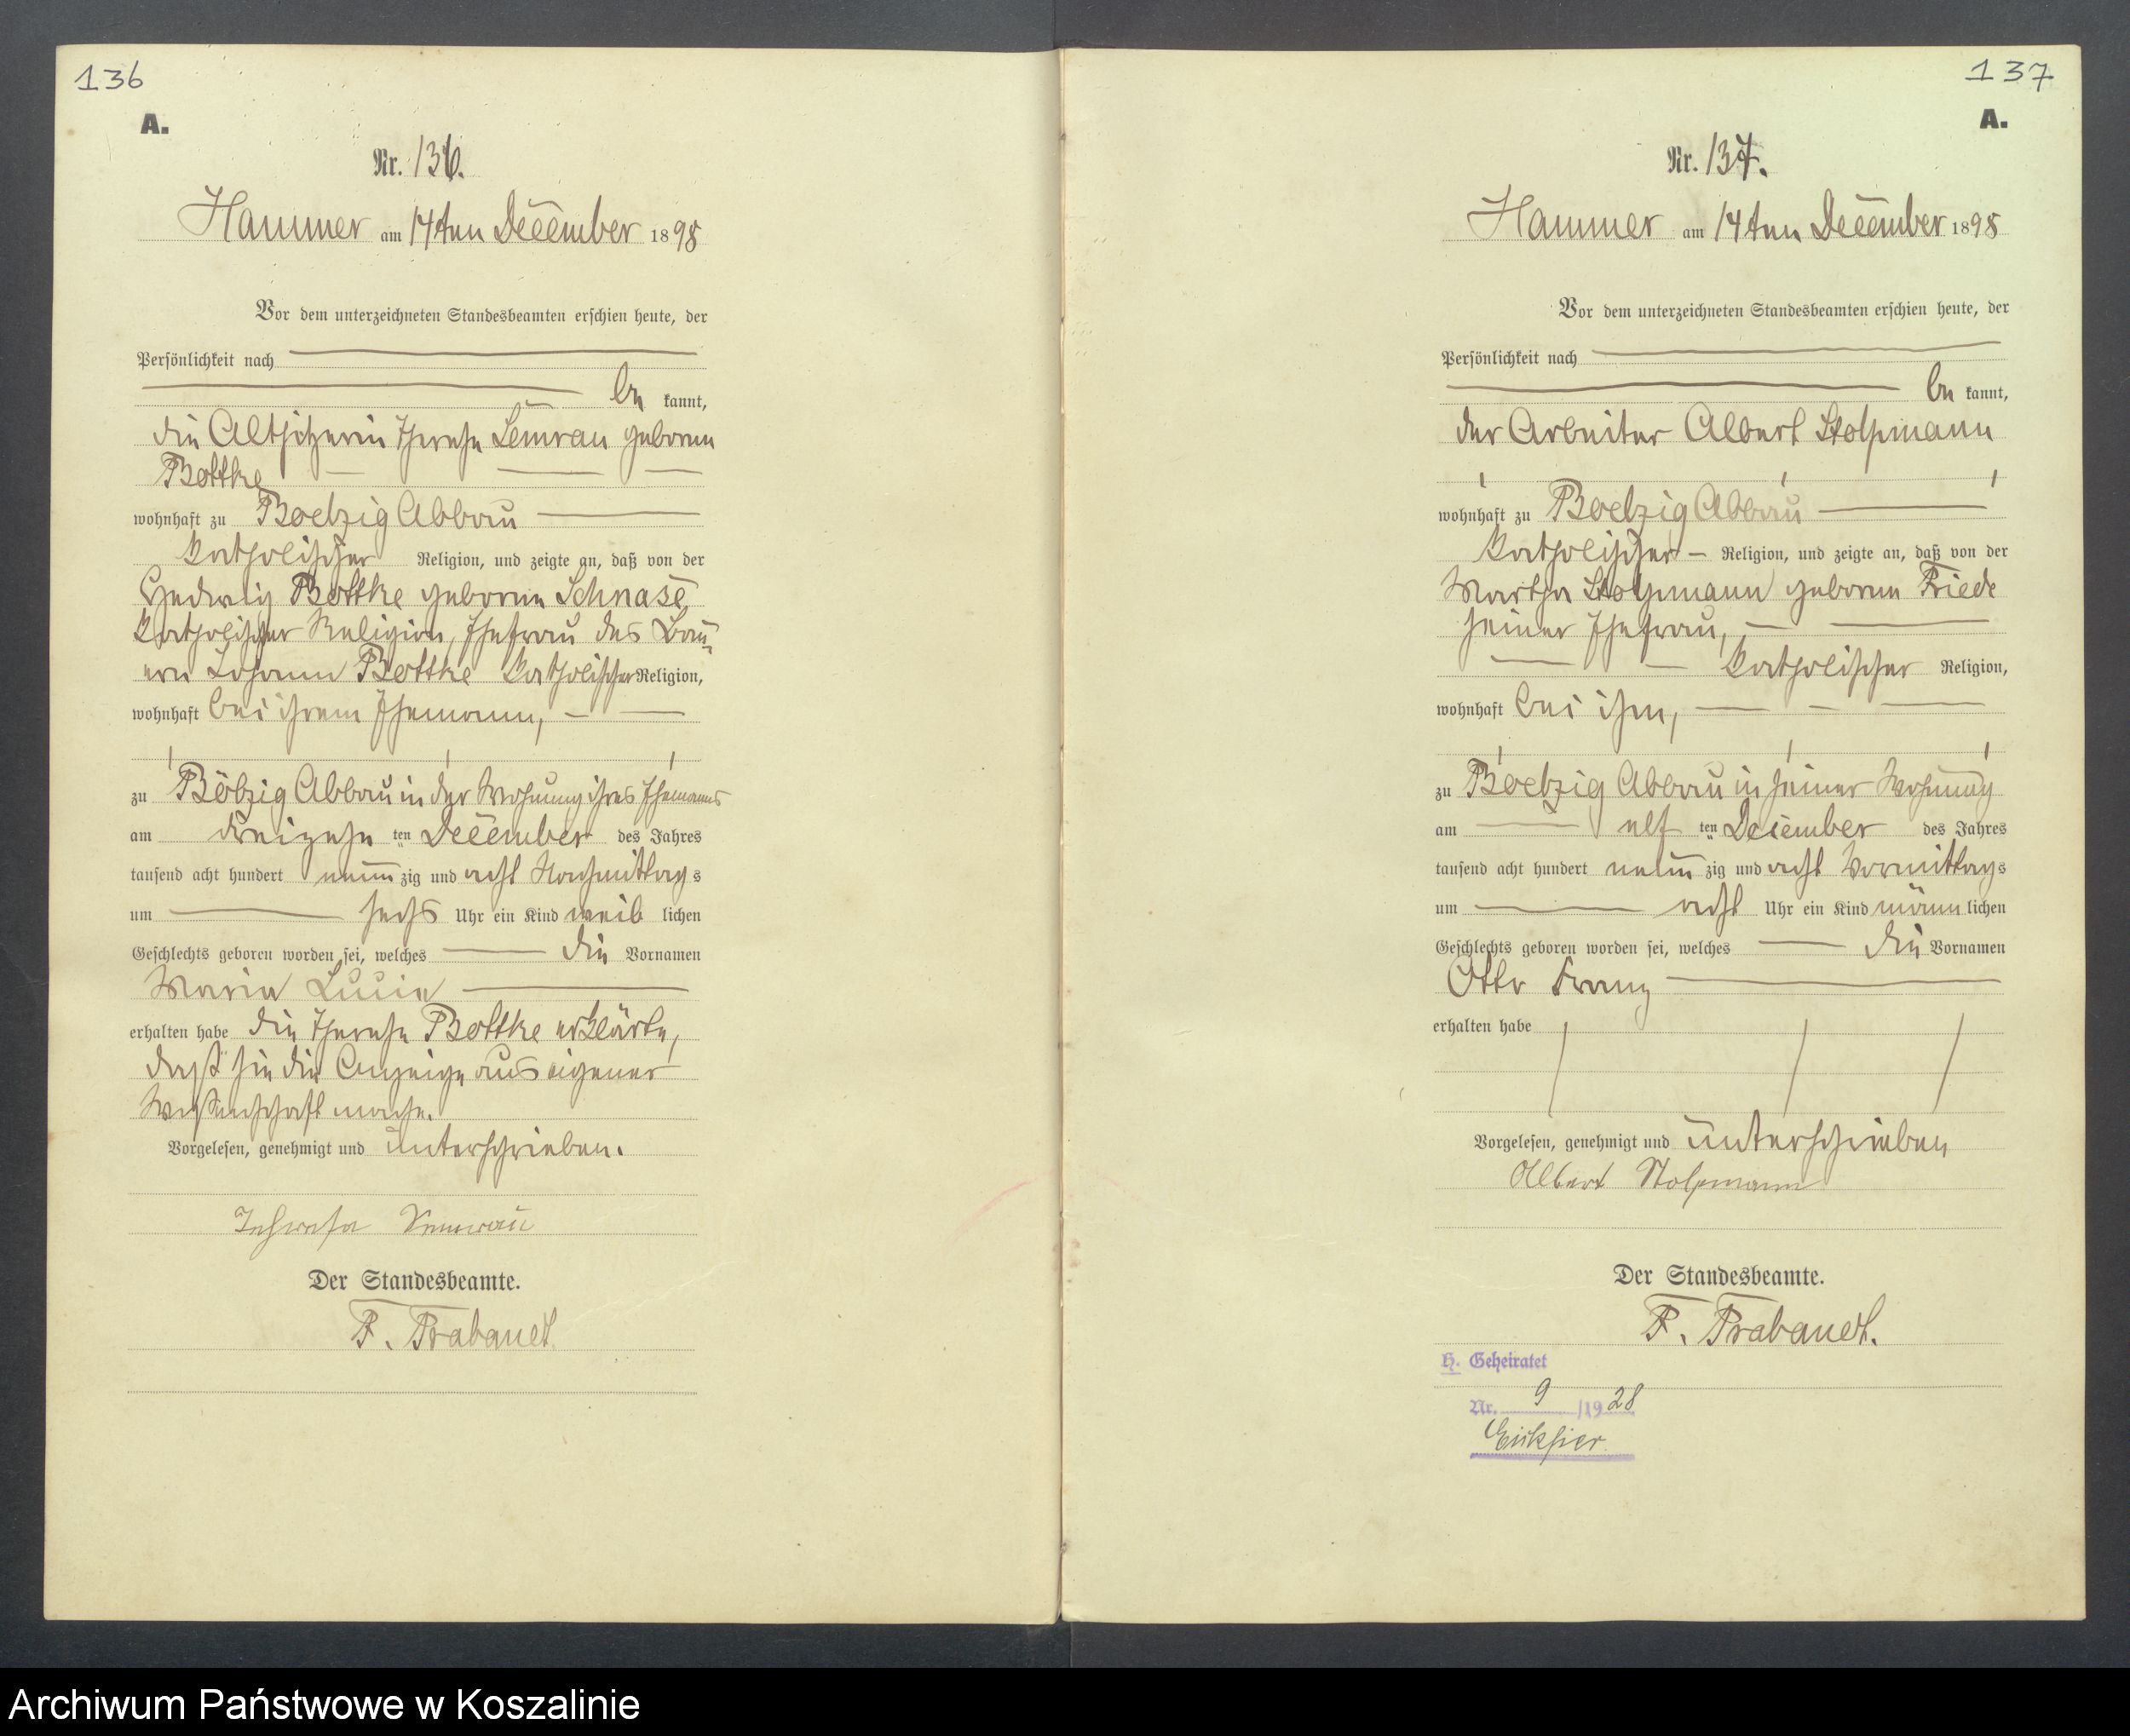 136
A.
Nr. 136.
Hammer am 14ten December 1898
Vor dem unterzeichneten Standesbeamten erschien heute, der
Persönlichkeit nach
be kannt,
die Altsitzerin Therese Semrau geborene
Bottke
wohnhaft zu Boelzig Abbau
katholischer Religion, und zeigte an, daß von der
Hedwig Bottke geborene Schnase
katholischer Religion, Ehefrau des Bau-
ern Johann Bottke katholischer Religion,
wohnhaft bei ihrem Ehemann,
zu Bölzig Abbau in der Wohnung ihres Ehemanns
am dreizehn ten December des Jahres
tausend acht hundert neun zig und acht Nachmittag s
um sechs Uhr ein Kind weib lichen
Geschlechts geboren worden sei, welches die Vornamen
Maria Lucia
erhalten habe die Therese Bottke erklärte,
daß sie die Anzeige aus eigener
Wissenschaft mache.
Vorgelesen, genehmigt und unterschrieben.
Semrau
Der Standesbeamte.
F. Trabandt
137
A.
Nr. 137.
Hammer am 14ten December 1898
Vor dem unterzeichneten Standesbeamten erschien heute, der
Persönlichkeit nach
be kannt,
der Arbeiter Albert Stolpmann
wohnhaft zu Boelzig Abbau
katholischer Religion, und zeigte an, daß von der
Martha Stolpmann geborene Friede
seiner Ehefrau,
katholischer Religion,
wohnhaft bei ihm,
zu Boelzig Abbau in seiner Wohnung
am elf ten December des Jahres
tausend acht hundert neun zig und acht Vormittag s
um acht Uhr ein Kind männ lichen
Geschlechts geboren worden sei, welches die Vornamen
Otto Franz
erhalten habe
Vorgelesen, genehmigt und unterschrieben
Albert Stolpmann
Der Standesbeamte.
F. Trabandt.
H. Geheiratet
Nr. 9 /19 28
Archiwum Państwowe w Koszalinie